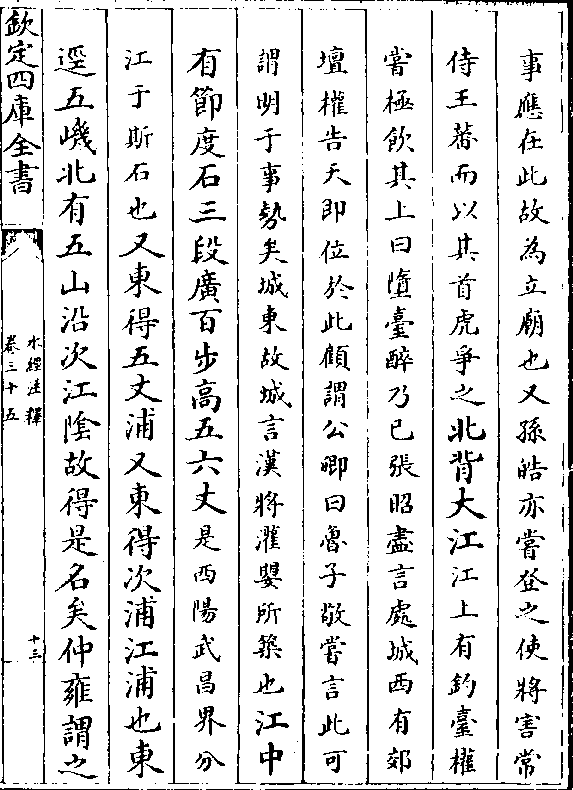 事應在此故為立廟也又孫皓亦嘗登之使將害常
侍王蕃而以其首虎爭之北背大江江上有釣臺權
嘗極飲其上曰墮臺醉乃已張昭盡言處城西有郊
壇權告天即位於此顧謂公卿曰魯子敬嘗言此可
謂明于事勢矣城東故城言漢將灌嬰所築也江中
有節度石三段廣百步高五六丈是西陽武昌界分
江于斯石也又東得五丈浦又東得次浦江浦也東
逕五磯北有五山沿次江陰故得是名矣仲雍謂之
欽定四庫全書
水經注釋
卷三十五
十三